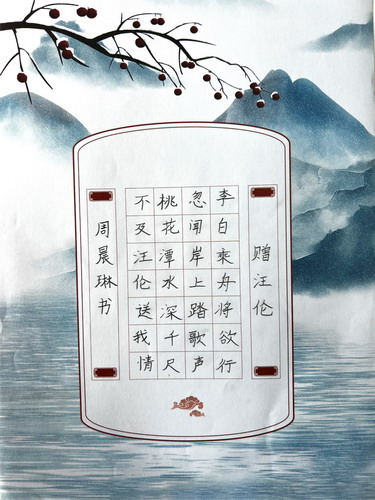 赠汪伦
李白乘舟将欲行
忽闻岸上踏歌声
桃花潭水深千尺
不及汪伦送我情
周晨琳书